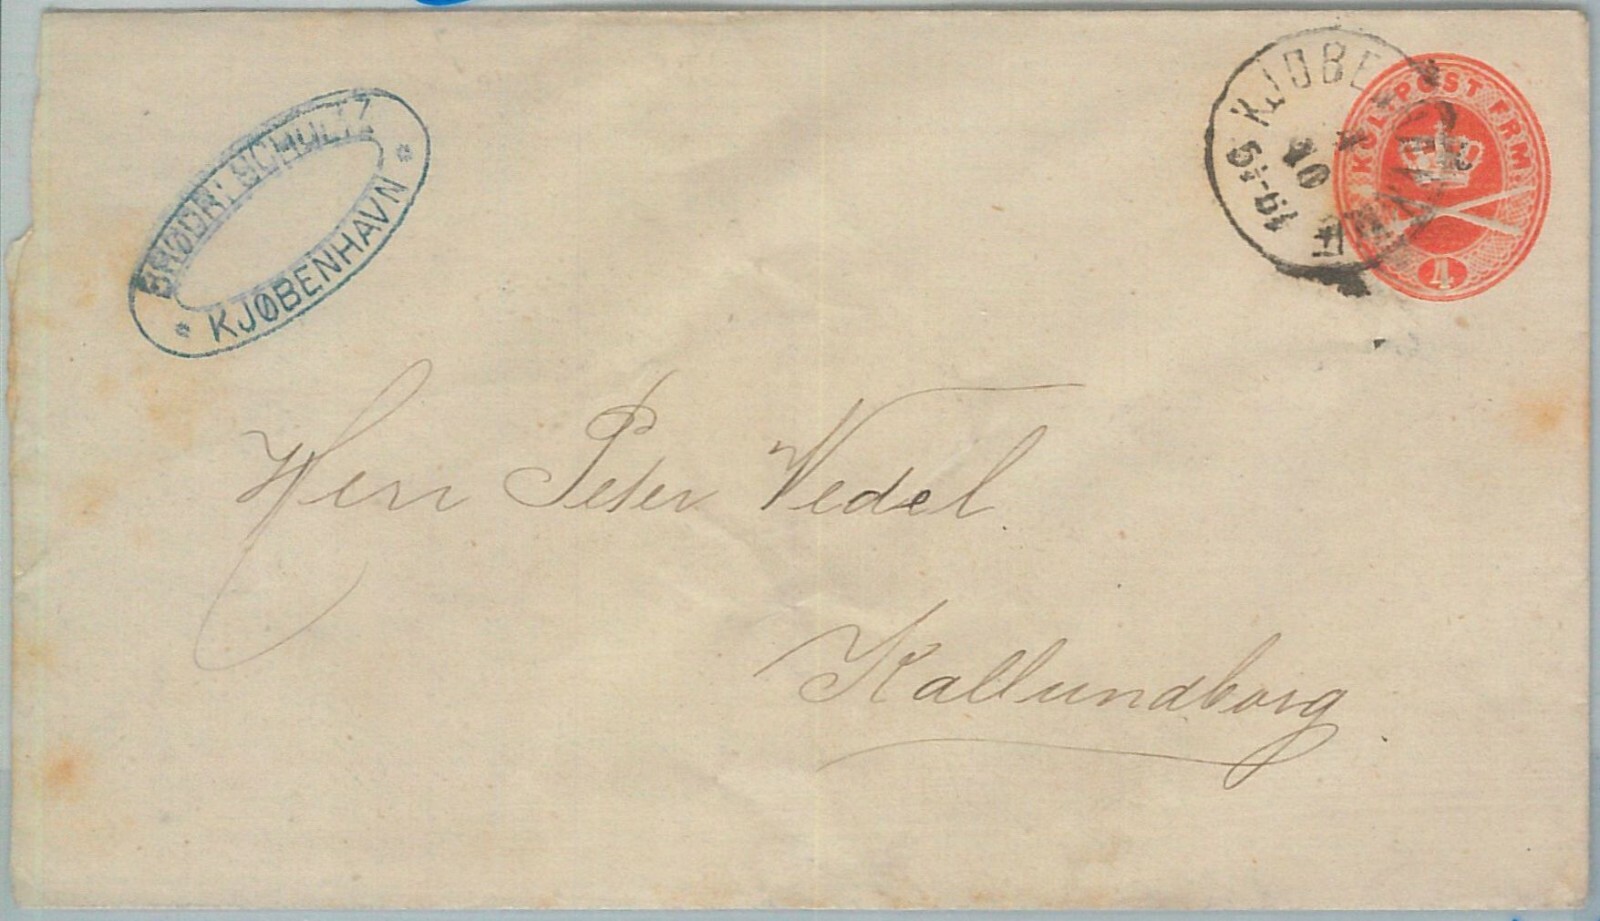 BRØDR: SCHULTZ
* KJØBENHAVN *
KJØBE
1
10
KGL POST FRM.
4
Herr Peter Vedel.
Kallundborg.